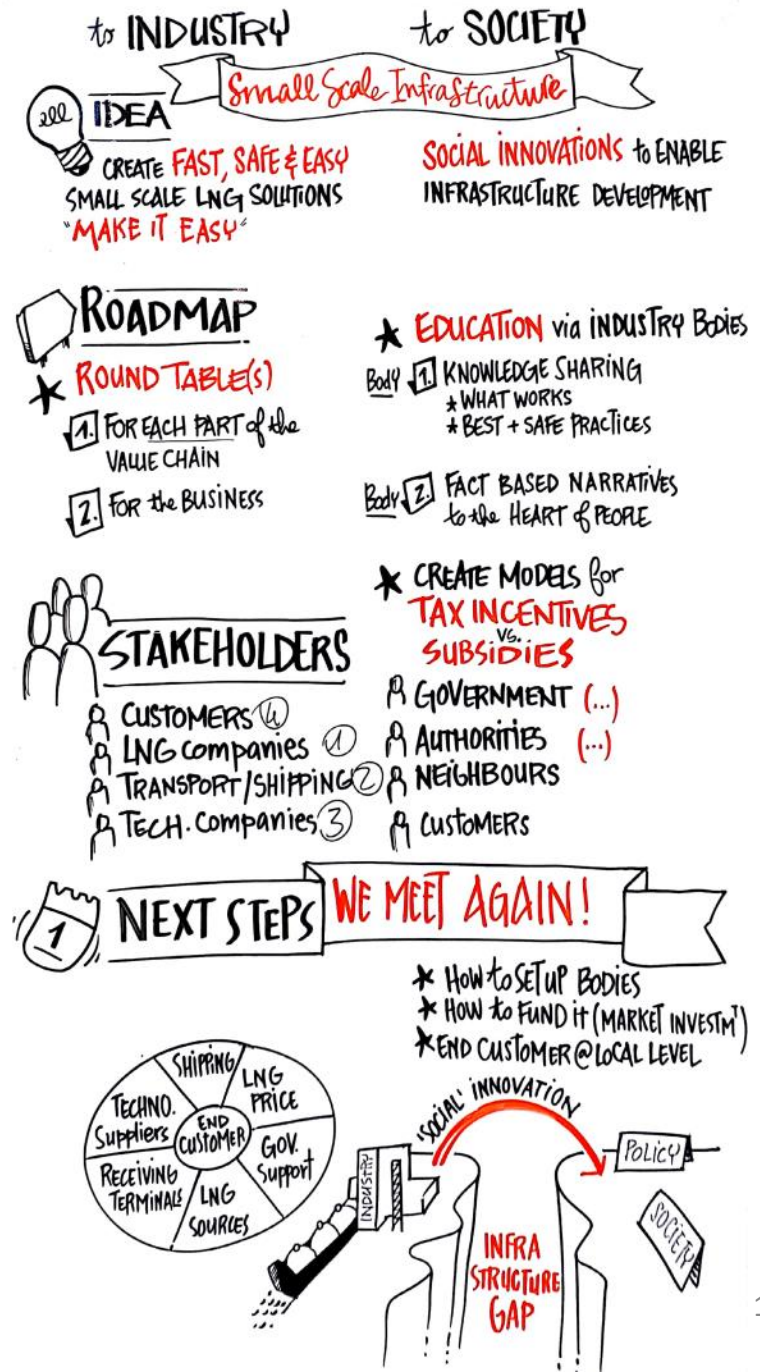 to INDUSTRY
to SOCIETY
Small Scale Infrastructure
IDEA
CREATE FAST, SAFE & EASY
SMALL SCALE LNG SOLUTIONS
"MAKE IT EASY"
SOCIAL INNOVATIONS to ENABLE
INFRASTRUCTURE DEVELOPMENT
ROADMAP
ROUND TABLE(S)
1. FOR EACH PART of the
VALUE CHAIN
2. FOR the BUSINESS
EDUCATION via INDUSTRY BODIES
Body 1. KNOWLEDGE SHARING
* WHAT WORKS
* BEST + SAFE PRACTICES
Body 2. FACT BASED NARRATIVES
to the HEART of PEOPLE
CREATE MODELS for
TAX INCENTIVES
VS.
SUBSIDIES
STAKEHOLDERS
CUSTOMERS 4
LNG companies 1
TRANSPORT/SHIPPING 2
TECH. Companies 3
GOVERNMENT (...)
AUTHORITIES (...)
NEIGHBOURS
CUSTOMERS
1
NEXT STEPS
WE MEET AGAIN!
* HOW to SET UP BODIES
* HOW to FUND it (MARKET INVESTMT)
* END CUSTOMER @ LOCAL LEVEL
SHIPPING
LNG
PRICE
TECHNO.
Suppliers
END
CUSTOMER
GOV.
Support
RECEIVING
TERMINALS
LNG
SOURCES
INDUSTRY
'SOCIAL' INNOVATION
POLICY
SOCIETY
INFRA
STRUCTURE
GAP